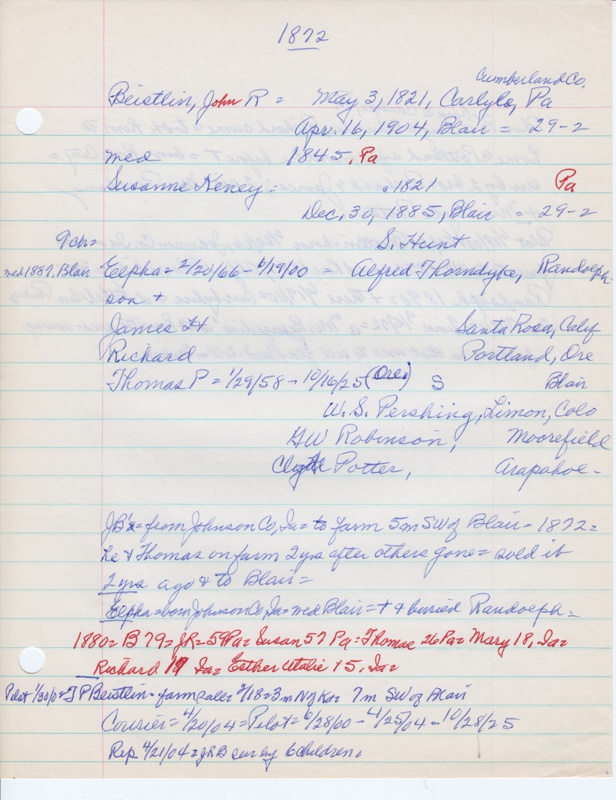 1872
Cumberland Co.
Beistlin, John R = May 3, 1821, Carlyle, Pa
Apr. 16, 1904, Blair = 29-2
med 1845, Pa
Susanne Keney = .1821 Pa
Dec, 30, 1885, Blair = 29-2
9 ch = S. Hunt
med 1887, Blair Eelpha = 2/20/66 - 6/19/00 = Alfred Thorndyke, Randolph
son +
James H Santa Rosa, Calif
Richard Portland, Ore
Thomas P = 1/29/58 - 10/16/25 (Ore.) S Blair
W. S. Pershing, Limon, Colo
GW Robinson, Moorefield
Clyde Potter, Arapahoe -
JB's = from Johnson Co, Ia = to farm 5 m SW of Blair - 1872 =
he & Thomas on farm 2 yrs after others gone = sold it
2 yrs ago & to Blair =
Eelpha = born Johnson Co, Ia = med Blair = + & buried Randolph =
1880 = B 79 = JR = 59 Pa = Susan 57 Pa = Thomas 26 Pa = Mary 18, Ia =
Richard 17 Ia = Esther 15, Ia =
Pilot 1/30/0 = T P Beistlin - farm sale = 2/18 = 3 m N of Ko = 7 m SW of Blair
Courier = 4/20/04 = Pilot = 6/28/00 - 4/25/04 - 10/28/25
Rep 4/21/04 = JRB sur by 6 children.